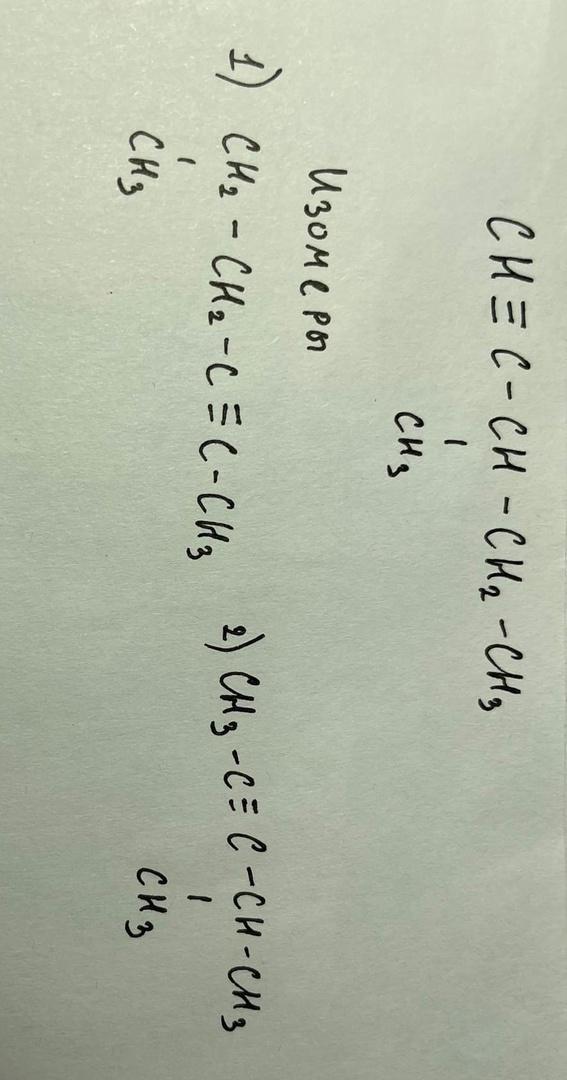 CH≡C-CH-CH₂-CH₃
CH₃
Изомеры
1) CH₂-CH₂-C≡C-CH₃ 2) CH₃-C≡C-CH-CH₃
CH₃ CH₃